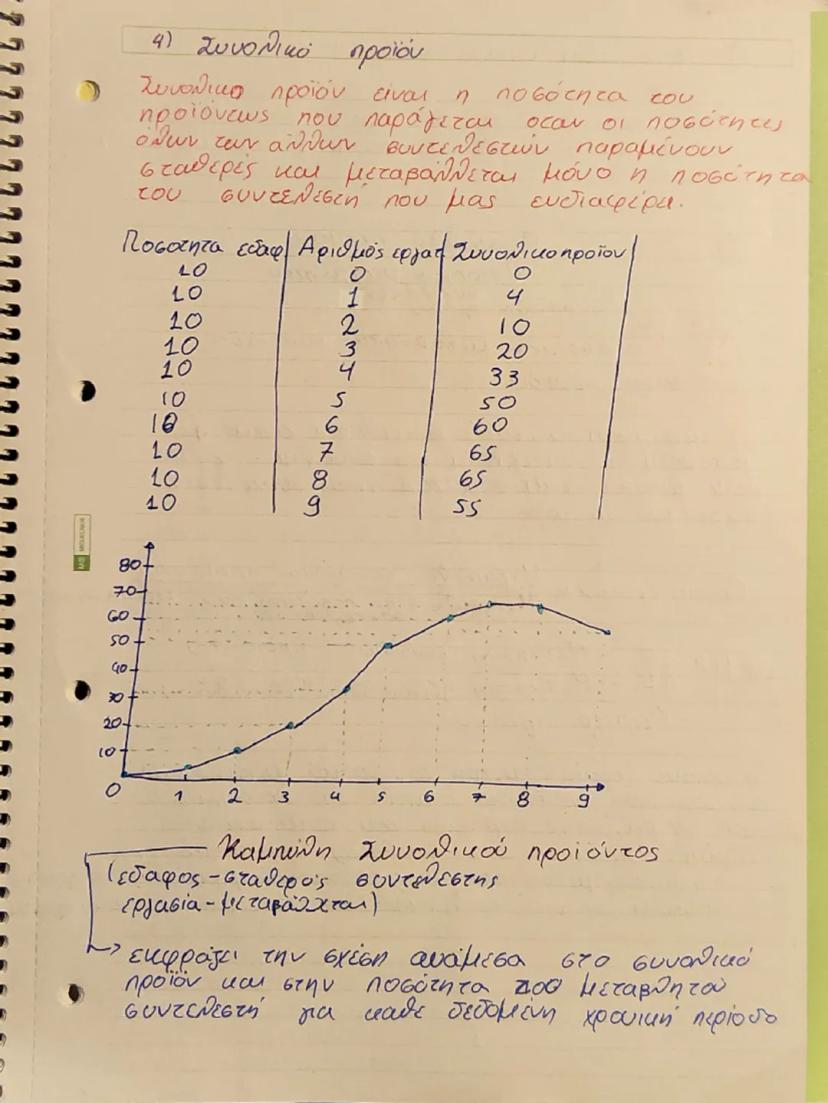 4) Συνολικό προϊόν
Συνολικο προϊόν είναι η ποσότητα του
προϊόντως που παράγεται οταν οι ποσότητες
όλων των αλλων συντελεστών παραμένουν
σταθερές και μεταβάλλεται μόνο η ποσότητα
του συντελεστή που μας ενδιαφέρει.
Ποσοτητα εδαφ Αριθμός εργατ Συνολικο προϊον
10 0 0
10 1 4
10 2 10
10 3 20
10 4 33
10 5 50
10 6 60
10 7 65
10 8 65
10 9 55
80
70
60
50
40
30
20
10
0 1 2 3 4 5 6 7 8 9
Καμπύλη Συνολικού προϊόντος
(εδαφος-σταθερός συντελέστης
εργασία-μεταβάλλεται)
εκφράζει την σχέση ανάμεσα στο συνολικό
προϊόν και στην ποσότητα του μεταβλητού
συντελεστή για καθε δεδομένη χρονική περίοδο